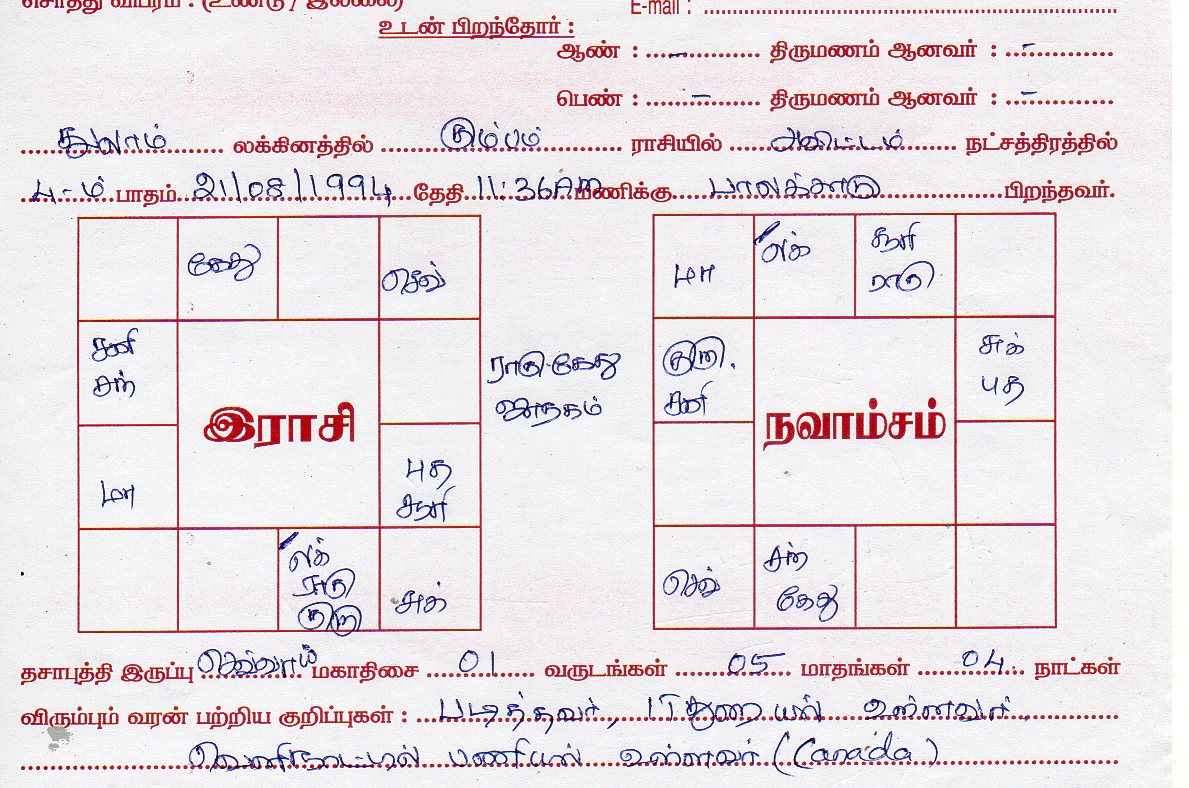 சொத்து விபரம் : (உண்டு / இல்லை)
E-mail : ................
உடன் பிறந்தோர் :
ஆண் : ......–...... திருமணம் ஆனவர் : ...–......
பெண் : ......–...... திருமணம் ஆனவர் : ...–......
துலாம் லக்கினத்தில் கும்பம் ராசியில் அவிட்டம் நட்சத்திரத்தில்
4-ம் பாதம் 21/08/1994, தேதி 11:36AM மணிக்கு பாலக்காடு பிறந்தவர்.
கேது
செவ்
சனி
சந்
இராசி
மா
புத
சூரி
லக்
ராகு
குரு
சுக்
ராகு-கேது
ஜாதகம்
மா
லக்
சூரி
ராகு
குரு.
சனி
நவாம்சம்
சுக்
புத
செவ்
சந்
கேது
தசாபுத்தி இருப்பு செவ்வாய் மகாதிசை 01 வருடங்கள் 05 மாதங்கள் 04 நாட்கள்
விரும்பும் வரன் பற்றிய குறிப்புகள் : படித்தவர், IT துறையில் உள்ளவர்,
வெளிநாட்டில் பணியில் உள்ளவர் (Canada)